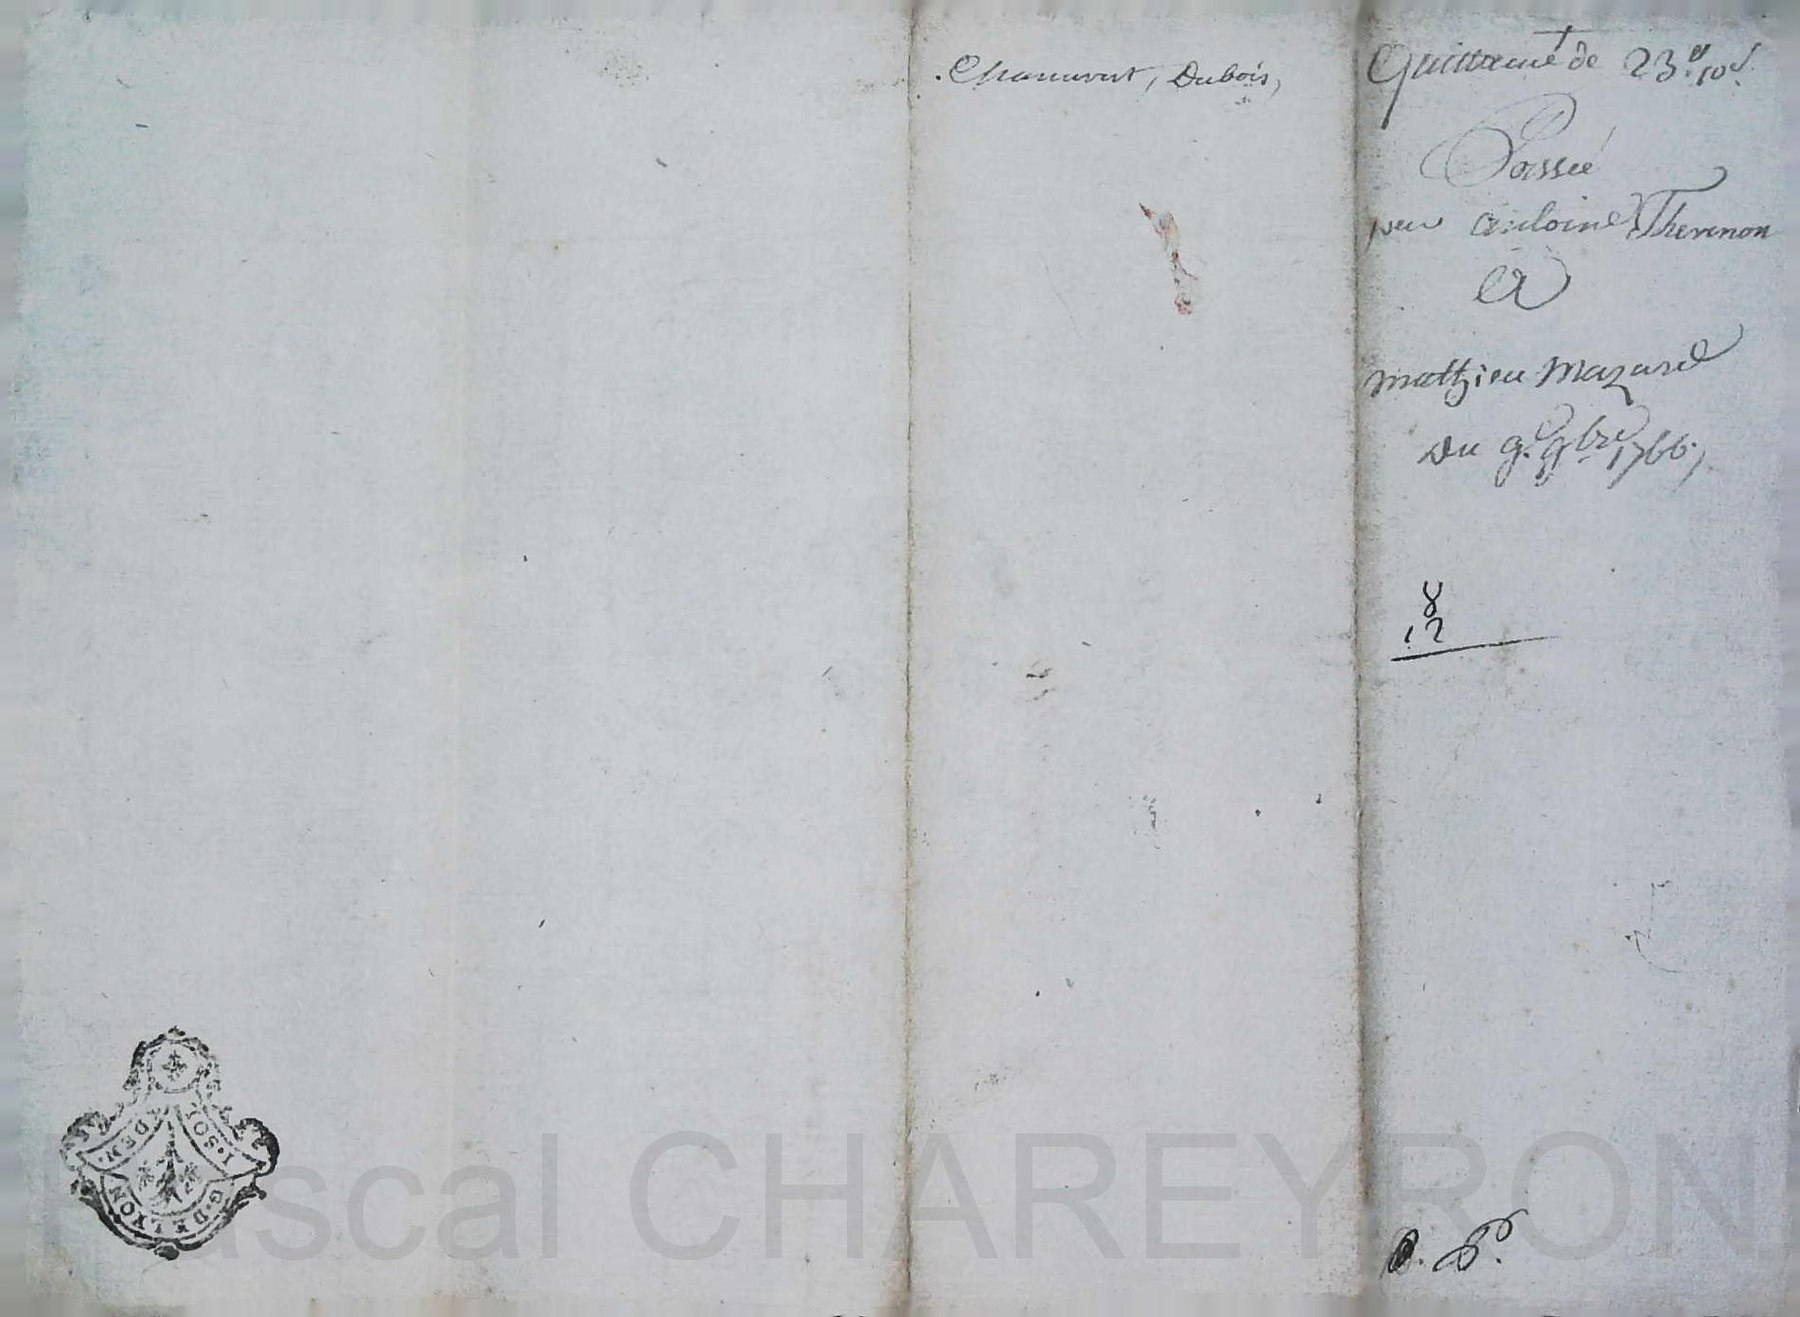 Chanuvert, Dubois,
Quittance de 23.# 10.s
Passée
par Antoine Thevenon
A
Mathieu Mazard
Du 9.e 9bre 1766,
8
12
I. SOL
DEN.
G. DE LYON
Pascal CHAREYRON